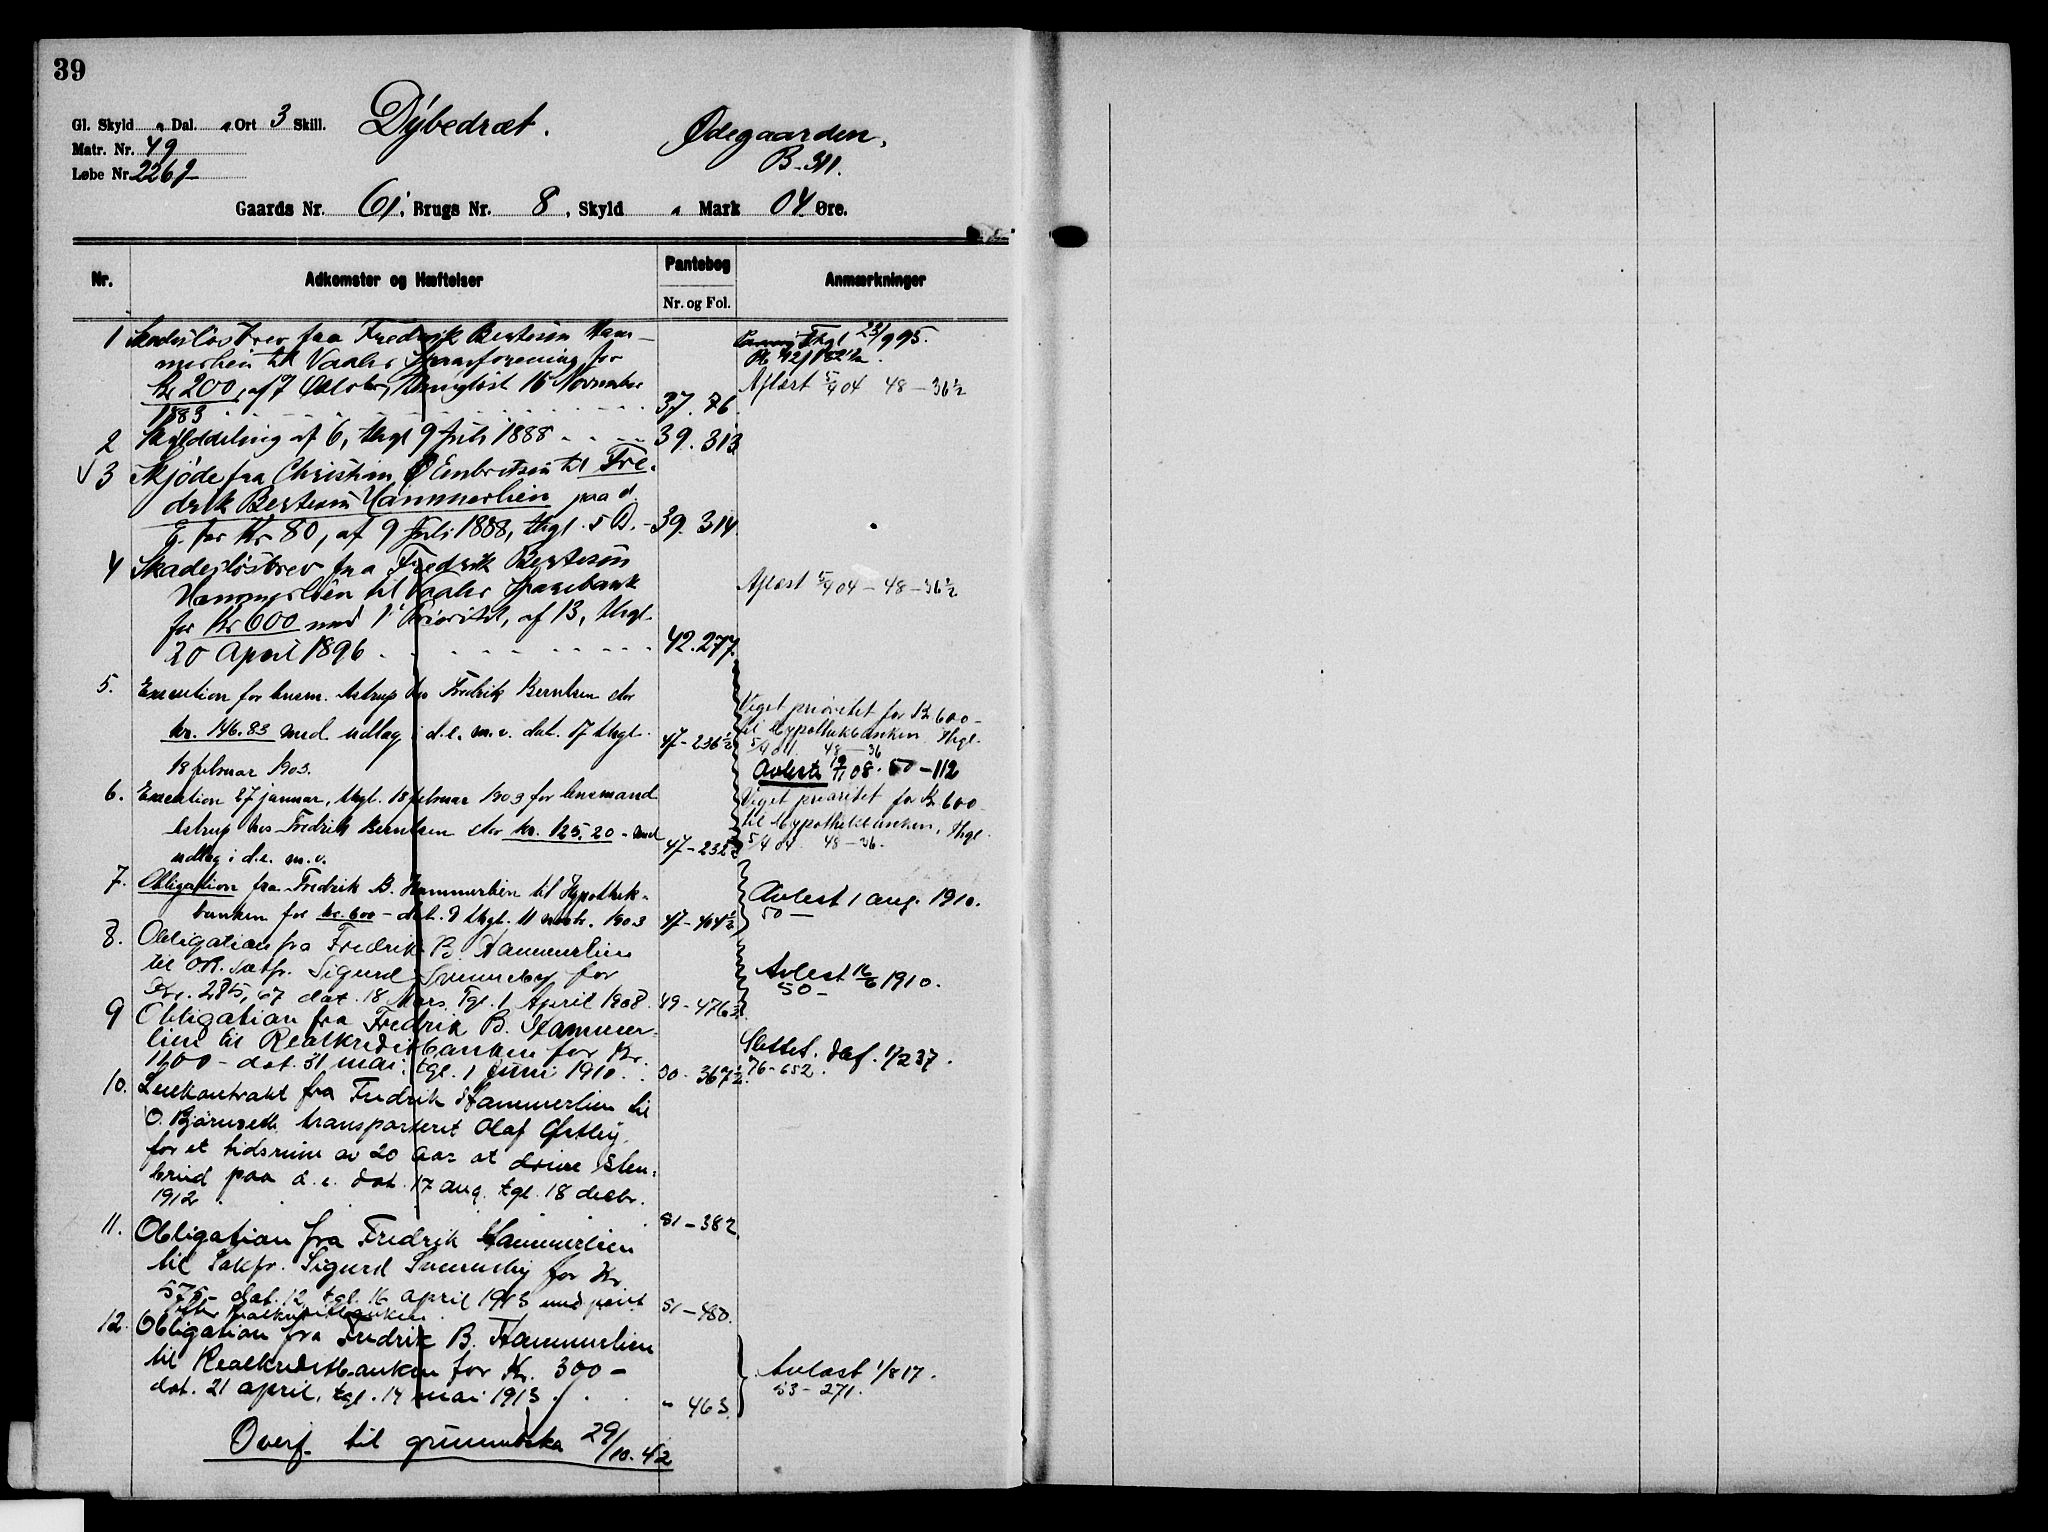 39
Gl. Skyld „ Dal. „ Ort 3 Skill.
Dybedræt.
Ødegaarden,
B-311.
Matr. Nr. 49
Løbe Nr. 226
Gaards Nr. 61, Brugs Nr. 8, Skyld „ Mark 04 Øre.
Nr.
Adkomster og Hæftelser
Pantebog
Nr. og Fol.
Anmærkninger
1 Skadesløsbrev fra Fredrik Bertesen Ham-
merlien til Vaaler Spareforening for
Kr 200, af 7 October, thinglæst 15 November
1883 37. 76
Thgl 23/9 95.
Aflæst 5/4 04 48-36½
2 Skylddeling af 6, thgl 9 Juli 1888 39. 313
3 Skjøde fra Christian Embretsen til Fre-
drik Bertesen Hammerlien paa d.
E. for Kr 80, af 9 Juli 1888, thgl. s. D. 39. 314
4 Skadesløsbrev fra Fredrik Bertesen
Hammerlien til Vaaler Sparebank
for Kr 600 med 1' Prioritet, af 13, thgl.
20 April 1896 42. 277.
Aflæst 5/4 04 - 48-36½
5. Execution for lensm. Astrup hos Fredrik Berntsen stor
kr. 146.83 med udlæg i d.e. m.v. dat. 17 thgl.
18 februar 1903. 47-236½
Viget prioritet for Kr 600-
til Hypothekbanken. Thgl.
5/4 04. 48-36
Avlest 19/11 08. 50-112
6. Execution 27 januar, thgl. 18 februar 1903 for lensmand
Astrup hos Fredrik Berntsen stor kr. 125.20 - med
udlæg i d.e. m.v. 47-232
Viget prioritet for Kr 600-
til Hypothekbanken, Thgl.
5/4 04. 48-36.
7. Obligation fra Fredrik B. Hammerlien til Hypothek-
banken for kr. 600 - dat. 9 thgl. 11 novbr. 1903 47-404½
Avlest 1 aug. 1910.
50-
8. Obligation fra Fredrik B. Hammerlien
til O.R. Sakfr. Sigurd Svenneby for
Kr. 285,67 dat. 18 Mars, Tgl. 1 April 1908. 49-476½
Avlest 16/6 1910.
50-
9 Obligation fra Fredrik B. Hammer-
lien til Realkreditbanken for Kr.
1600 - dat. 31 mai, tgl. 1 juni 1910. 50-367½
Slettet. Daf. 1/2 37.
76-652.
10. Leiekontrakt fra Fredrik Hammerlien til
O. Bjørnseth transporteret Olaf Østby
for et tidsrum av 20 aar at drive sten-
brud paa d.e. dat. 17 aug. tgl. 18 decbr.
1912 51-382
11. Obligation fra Fredrik Hammerlien
til Sakfr. Sigurd Svenneby for Kr.
575- dat. 12, tgl. 16 april 1913 med priot.
efter Realkreditbanken. 51-480.
12. Obligation fra Fredrik B. Hammerlien
til Realkreditbanken for Kr. 300-
dat. 21 april, tgl. 14 mai 1913. „ 463.
Avlæst 1/8 17.
53-271.
Overf. til grunnboka 29/10. 42